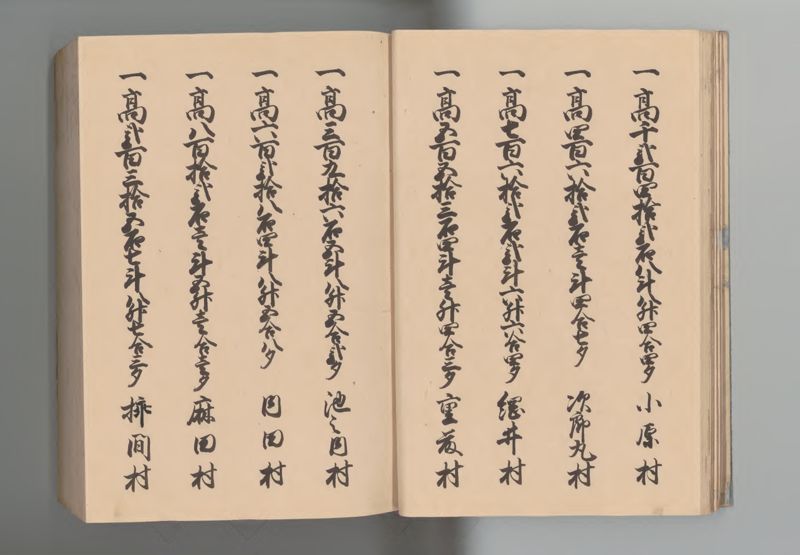 一高千弐百四拾弐石八斗八升四合四夕 小原村
一高四百六拾弐石壱斗四合七夕 次郎丸村
一高七百六拾弐石弐斗六升六合四夕 縄井村
一高五百五拾三石四斗壱升四合三夕 重友村
一高三百九拾六石五斗八升五合弐夕 池之内村
一高六百弐拾八石四斗八升五合八夕 円田村
一高八百拾弐石壱斗五升壱合壱夕 麻田村
一高弐百三拾五石七斗八升七合三夕 間村